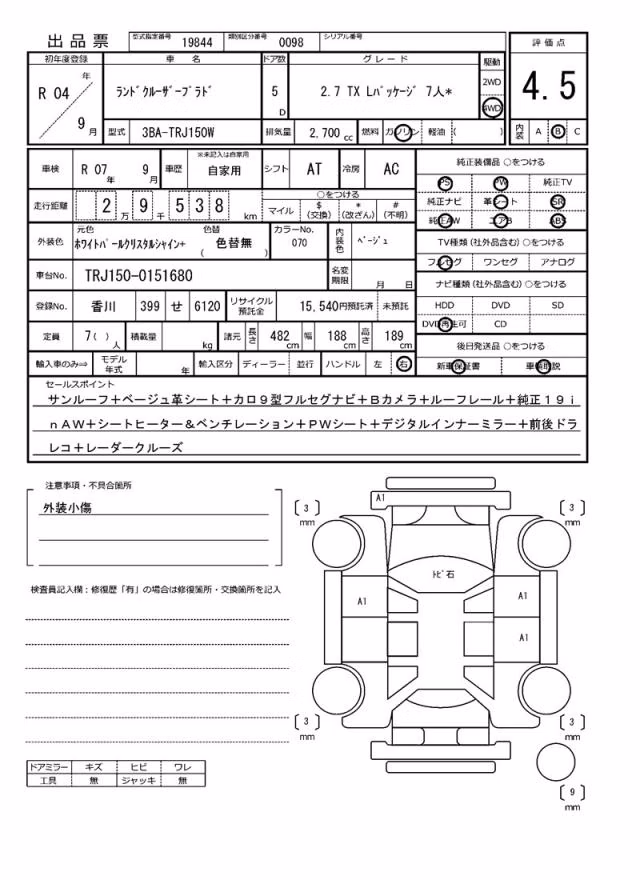 出品票 型式指定番号 19844 類別区分番号 0098 シリアル番号
評価点
4.5
内装 A B C
初年度登録 車名 ドア数 グレード 駆動
R 04 年 9 月
ﾗﾝﾄﾞｸﾙｰｻﾞｰﾌﾟﾗﾄﾞ 5 D 2.7 TX Lﾊﾟｯｹｰｼﾞ 7人*
2WD
4WD
型式 3BA-TRJ150W 排気量 2,700 cc 燃料 ガソリン 軽油 ( )
車検 R 07 年 9 月 車歴 ※未記入は自家用 自家用 シフト AT 冷房 AC
走行距離 2 万 9 千 5 3 8 km
○をつける
マイル $ (交換) * (改ざん) # (不明)
外装色 元色 ﾎﾜｲﾄﾊﾟｰﾙｸﾘｽﾀﾙｼｬｲﾝ+ 色替 ( 色替無 ) カラーNo. 070 内装色 ﾍﾞｰｼﾞｭ
車台No. TRJ150-0151680 名変期限 月 日
登録No. 香川 399 せ 6120 リサイクル預託金 15,540円預託済 未預託
定員 7( )人 積載量 kg 諸元 長さ 482 cm 幅 188 cm 高さ 189 cm
輸入車のみ⇒ モデル年式 年 輸入区分 ディーラー 並行 ハンドル 左 右
純正装備品 ○をつける
PS PW 純正TV
純正ナビ 革シート SR
純正AW エアB ABS
TV種類(社外品含む) ○をつける
フルセグ ワンセグ アナログ
ナビ種類(社外品含む) ○をつける
HDD DVD SD
DVD再生可 CD
後日発送品 ○をつける
新車保証書 車輌取説
セールスポイント
サンルーフ＋ベージュ革シート＋カロ９型フルセグナビ＋Ｂカメラ＋ルーフレール＋純正１９ｉ
ｎＡＷ＋シートヒーター＆ベンチレーション＋ＰＷシート＋デジタルインナーミラー＋前後ドラ
レコ＋レーダークルーズ
注意事項・不具合箇所
外装小傷
検査員記入欄：修復歴「有」の場合は修復箇所・交換箇所を記入
ドアミラー キズ ヒビ ワレ
工具 無 ジャッキ 無
A1
[ 3 ] mm
[ 3 ] mm
ﾄﾋﾞ石
A1
A1
A1
[ 3 ] mm
[ 3 ] mm
[ 9 ] mm